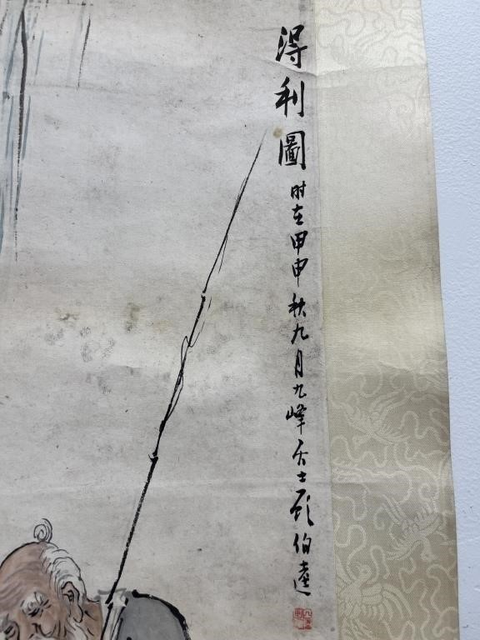 得利圖
時在甲申秋九月九峰居士顾伯逵